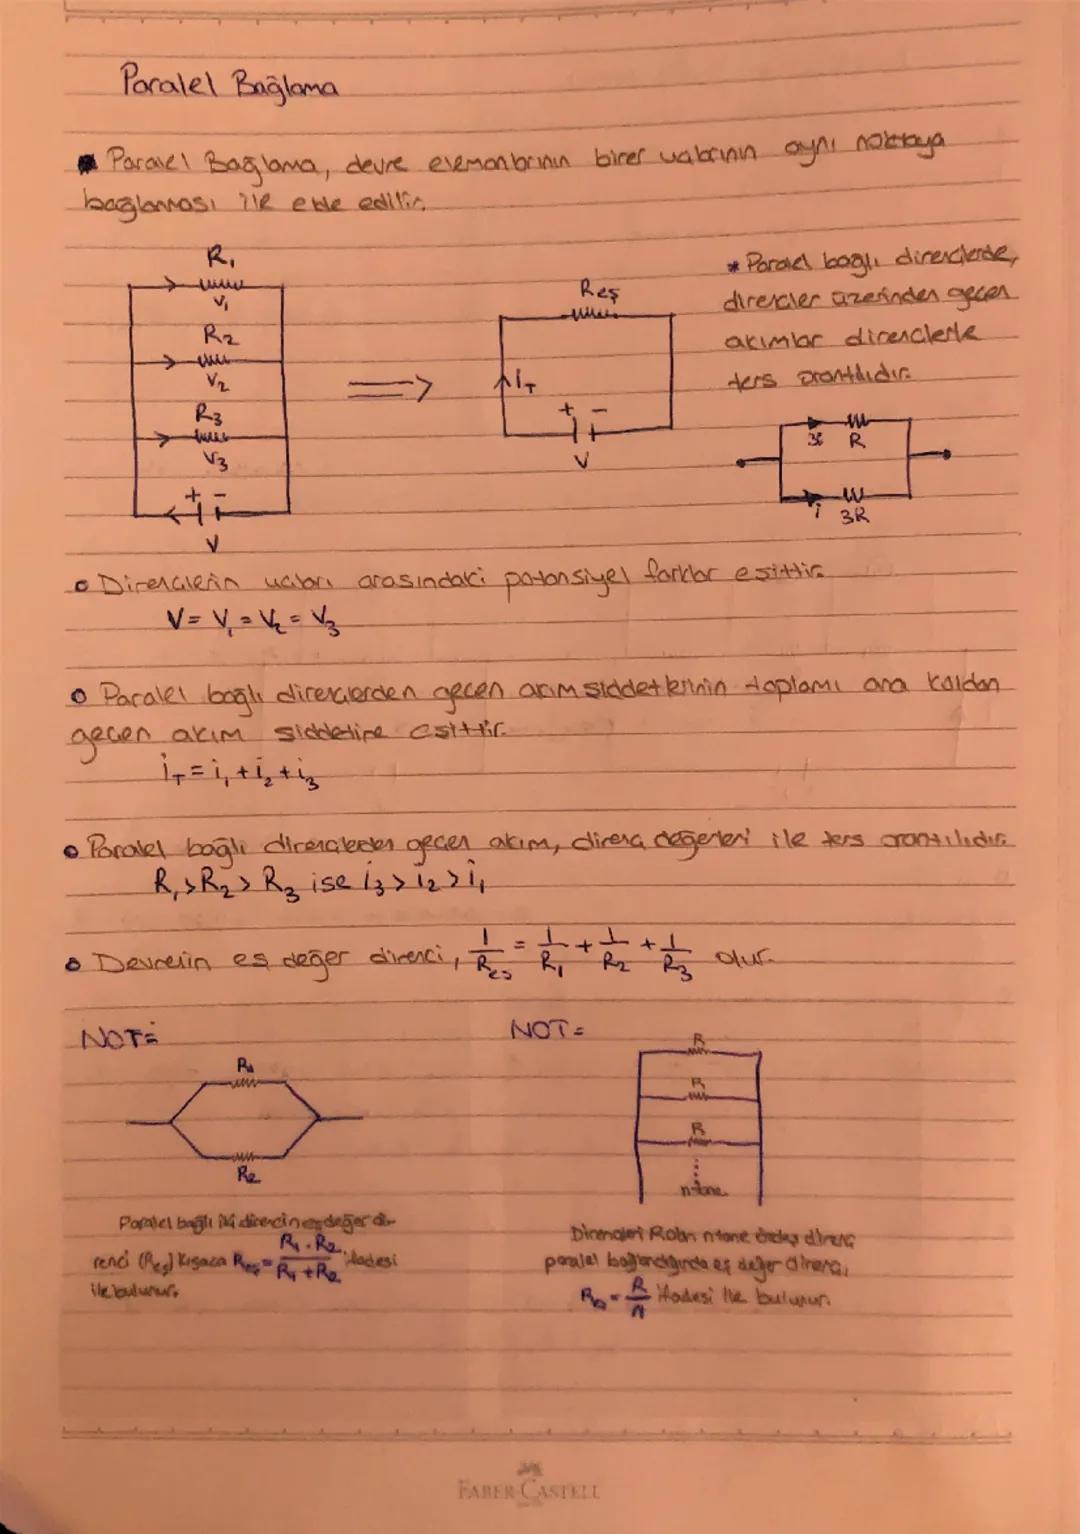 Paralel Bağlama
Paralel Bağlama, devre elemanlarının birer uçlarının aynı noktaya
bağlanması ile elde edilir.
R₁
V₁
R₂
V₂
R₃
V₃
+ -
V
Reş
iT
+ -
V
* Paralel bağlı dirençlerde,
dirençler üzerinden geçen
akımlar dirençlerle
ters orantılıdır.
3i R
i 3R
Dirençlerin uçları arasındaki potansiyel farklar eşittir.
V = V₁ = V₂ = V₃
Paralel bağlı dirençlerden geçen akım şiddetlerinin toplamı ana koldan
geçen akım şiddetine eşittir.
iT = i₁ + i₂ + i₃
Paralel bağlı dirençlerden geçen akım, direnç değerleri ile ters orantılıdır.
R₁ > R₂ > R₃ ise i₃ > i₂ > i₁
Devrenin eş değer direnci, 1/Reş = 1/R₁ + 1/R₂ + 1/R₃ olur.
NOT=
R₁
R₂
Paralel bağlı iki direncin eşdeğer di-
renci (Reş) kısaca Reş = R₁ . R₂ / R₁ + R₂ ifadesi
ile bulunur.
NOT=
R
R
R
n tane
Dirençleri R olan n tane özdeş direnç
paralel bağlandığında eş değer direnç,
Reş = R/n ifadesi ile bulunur.
FABER-CASTELL